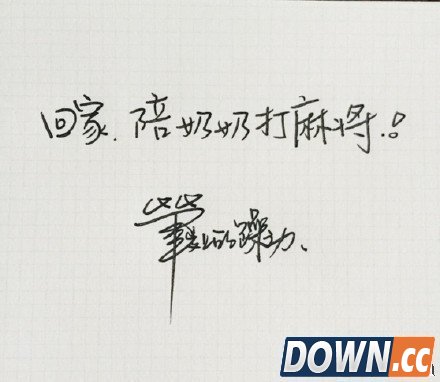 回家.陪奶奶打麻将.!
的躁动、
DOWN.cc